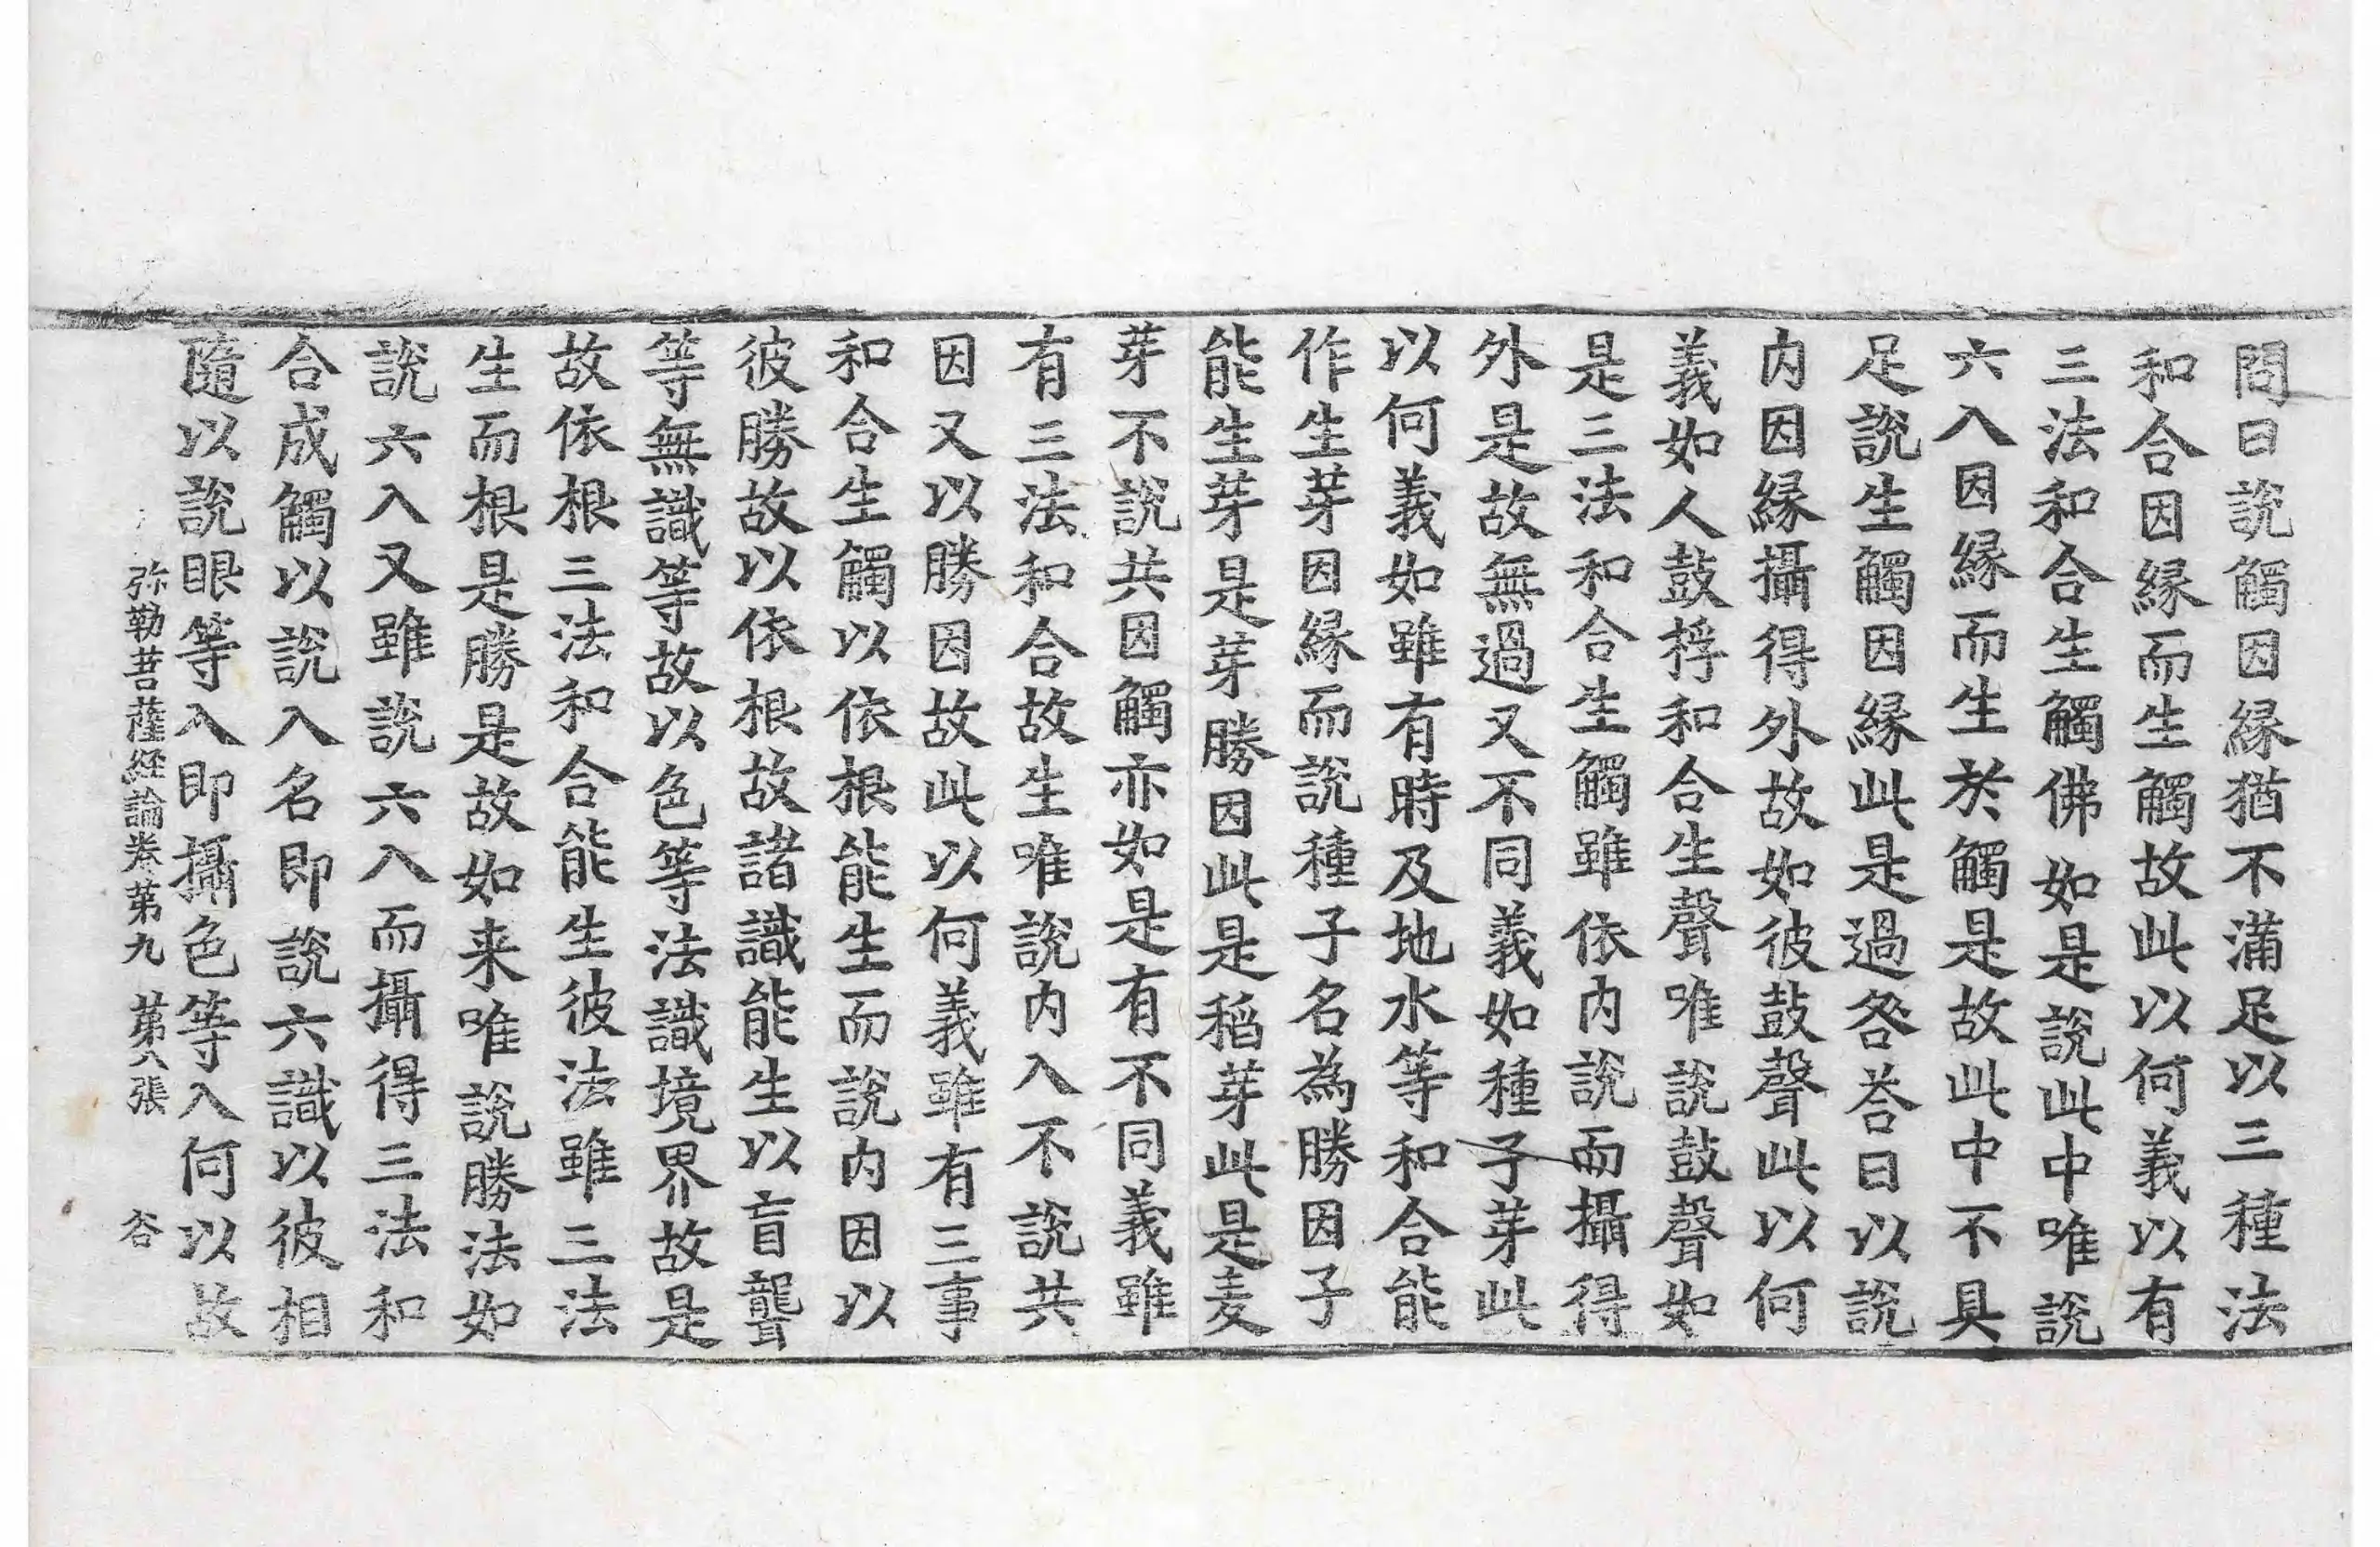 問曰說觸因縁猶不滿足以三種法
和合因縁而生觸故此以何義以有
三法和合生觸佛如是說此中唯說
六入因縁而生於觸是故此中不具
足說生觸因縁此是過咎荅曰以說
内因縁攝得外故如彼鼓聲此以何
義如人鼓桴和合生聲唯說鼓聲如
是三法和合生觸雖依内說而攝得
外是故無過又不同義如種子芽此
以何義如雖有時及地水等和合能
作生芽因縁而說種子名為勝因子
能生芽是芽勝因此是稻芽此是麦
芽不說共因觸亦如是有不同義雖
有三法和合故生唯說内入不說共
因又以勝因故此以何義雖有三事
和合生觸以依根能生而說内因以
彼勝故以依根故諸識能生以盲聾
等無識等故以色等法識境界故是
故依根三法和合能生彼法雖三法
生而根是勝是故如来唯說勝法如
說六入又雖說六入而攝得三法和
合成觸以說入名即說六識以彼相
隨以說眼等入即攝色等入何以故
弥勒菩薩経論卷第九 第八張 谷